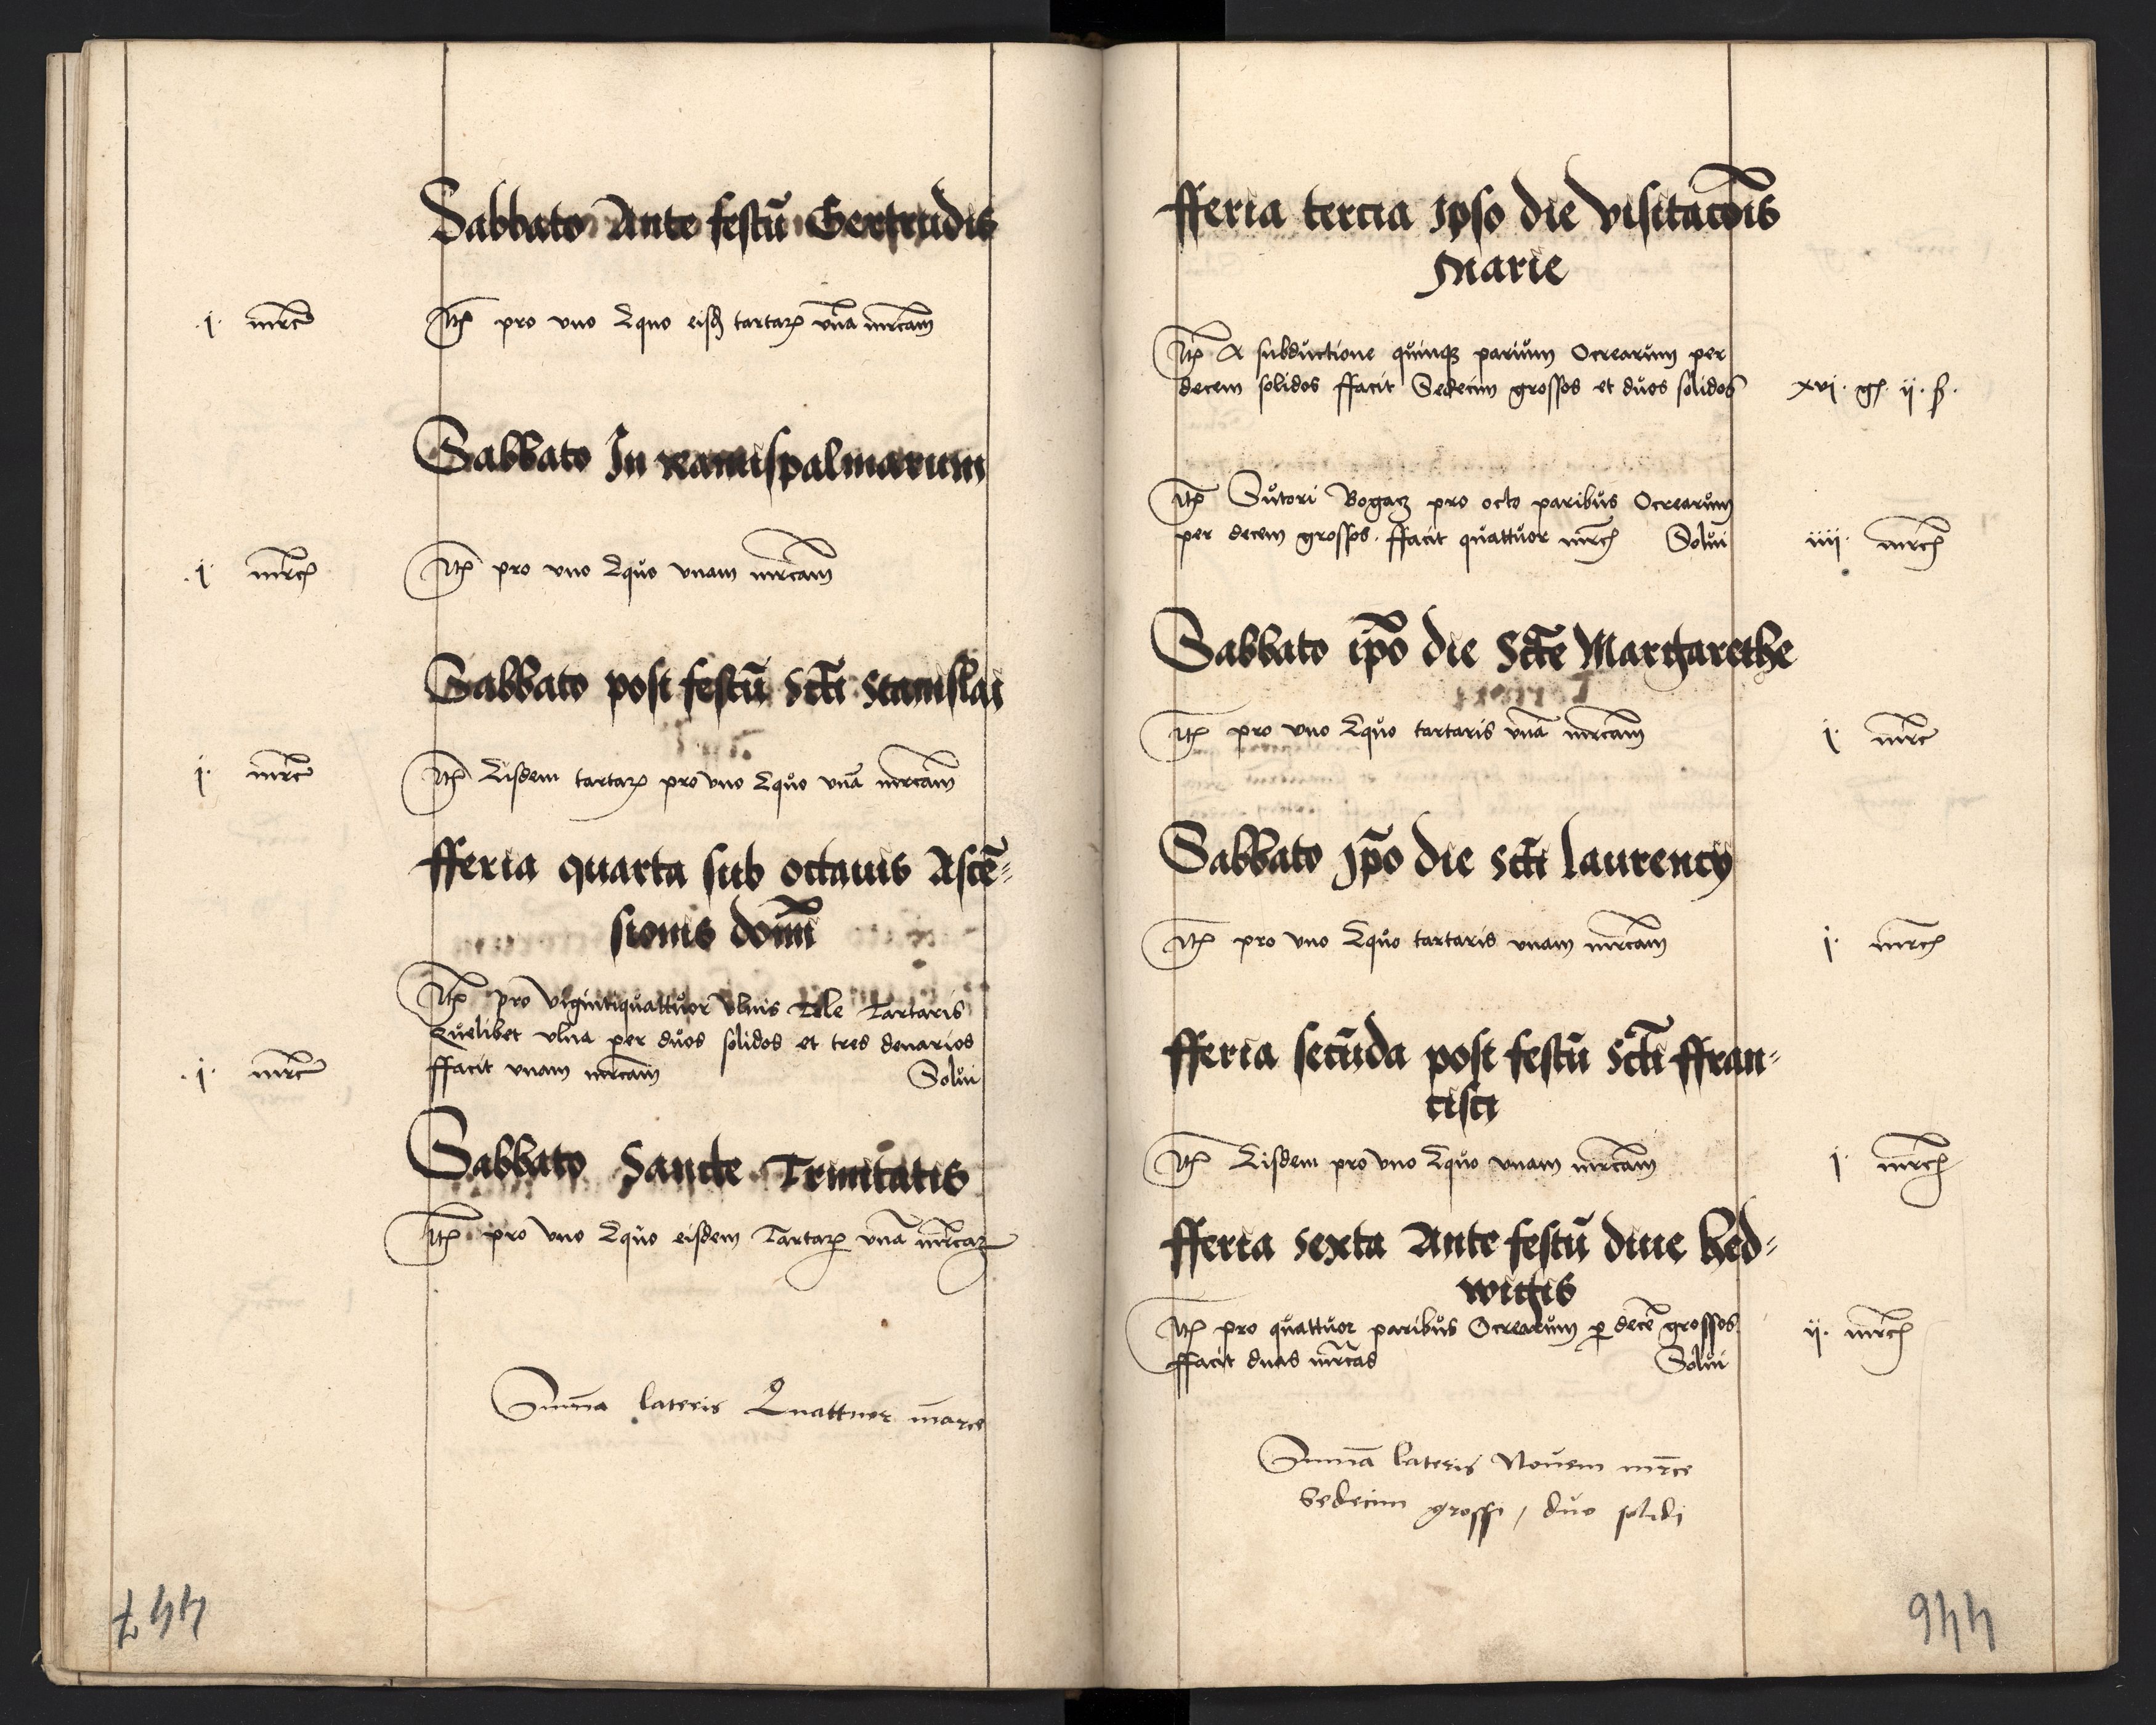 Sabbato Ante festū Gertrudis
.j. mrc̄
Itē pro vno Equo eisdē tartar̄ vnā mrcam
Sabbato In ramispalmarum
.j. mrcē
Itē pro vno Equo vnam mrcam
Sabbato post festū Sc̄ti Stanislai
j. mrc̄
Itē Eisdem tartar̄ pro vno Equo vnā mrcam
fferia quarta sub octauis Ascē=
sionis dom̄i
Itē pro vigintiquattuor vlnis Tele Tartaris
Quelibet vlna per duos solidos et tres denarios
.j. mrc̄
ffacit vnam mrcam Solui
Sabbato Sancte Trinitatis
Itē pro vno Equo eisdem Tartar̄ vnā mrcaz
Sum̄a lateris Quattuor marce
447
fferia tercia Ipso die visitac̄ois
Marie
Itē A subductione quinqz parium Ocrearum per
decem solidos ffacit Sedecim grossos et duos solidos xvj. gr̄. ij. ß.
Itē Sutori Bogacz pro octo paribus Ocrearum
per decem grossos. ffacit quattuor mrcē Solui iiij. mrcē
Sabbato ip̄o die Sc̄te Margarethe
Itē pro vno Equo tartaris vnā mrcam j. mrc̄
Sabbato Ip̄o die Sc̄ti Laurency
Itē pro vno Equo tartaris vnam mrcam j. mrcē
fferia secūda post festū Sc̄ti ffran=
cisci
Itē Eisdem pro vno Equo vnam mrcam j. mrcē
fferia sexta Ante festū diue hed=
wigis
Itē pro quattuor paribus Ocrearum p̱ decē grossos ij. mrcē
ffacit duas mrcas Solui
Sum̄a lateris Nouem mrce
Sedecim grossi, duo solidi
446